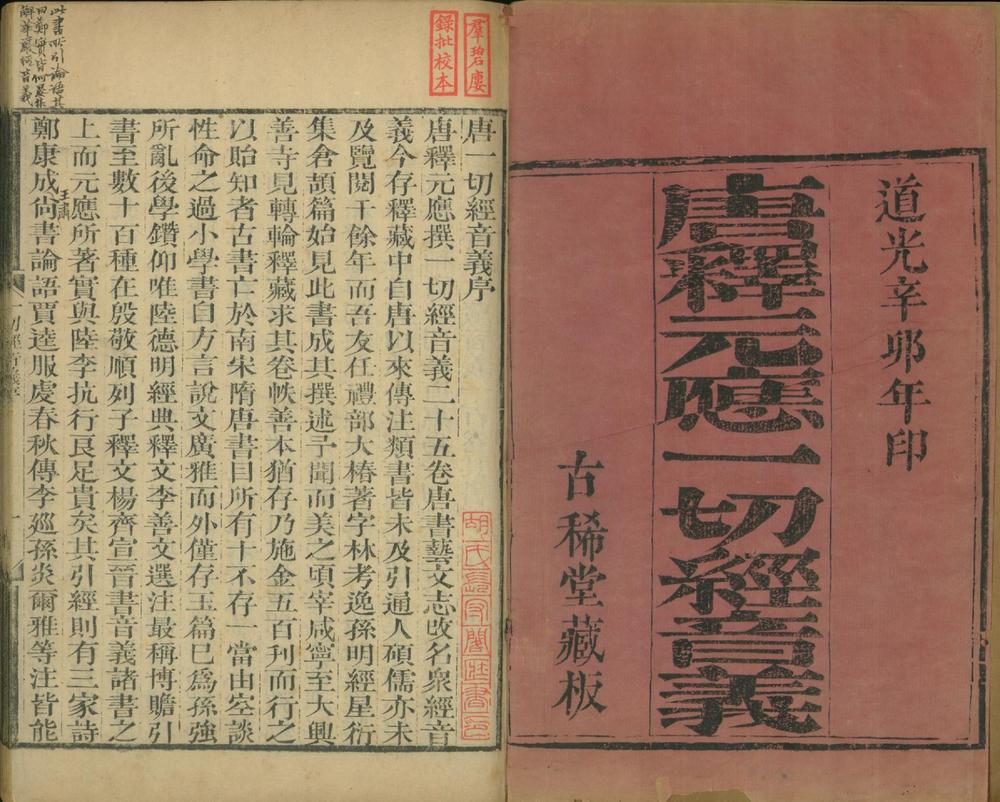 道光辛卯年印
唐釋元應一切經音義
古稀堂藏板
羣碧廔
錄批校本
唐一切經音義序
唐釋元應撰一切經音義二十五卷唐書藝文志改名衆經音
義今存釋藏中自唐以來傳注類書皆未及引通人碩儒亦未
及覽閱千餘年而吾友任禮部大椿著字林考逸孫明經星衍
集倉頡篇始見此書成其撰述予聞而美之頃宰咸寧至大興
善寺見轉輪釋藏求其卷帙善本猶存乃施金五百刊而行之
以貽知者古書亡於南宋隋唐書目所有十不存一當由空談
性命之過小學書自方言說文廣雅而外僅存玉篇已爲孫強
所亂後學鑽仰唯陸德明經典釋文李善文選注最稱博贍引
書至數十百種在殷敬順列子釋文楊齊宣晉書音義諸書之
上而元應所著實與陸李抗行良足貴矣其引經則有三家詩
鄭康成尙書論語賈逵服虔春秋傳李巡孫炎爾雅等注皆能
王肅
此書所引論語其